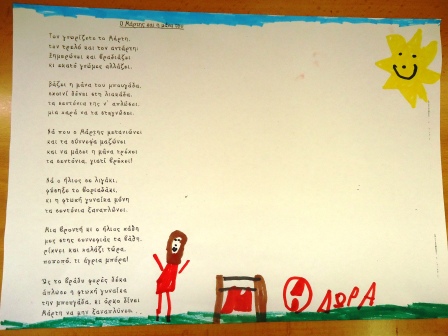 Ο Μάρτης και η μάνα του
Τον γνωρίζετε το Μάρτη,
τον τρελό και τον αντάρτη;
Ξημερώνει και βραδιάζει
κι εκατό γνώμες αλλάζει.
Βάζει η μάνα του μπουγάδα,
σκοινί δένει στη λιακάδα,
τα σεντόνια της ν' απλώσει,
μια χαρά να τα στεγνώσει.
Νά που ο Μάρτης μετανιώνει
και τα σύννεφα μαζώνει
και να μάσει η μάνα τρέχει
τα σεντόνια, γιατί βρέχει!
Νά ο ήλιος σε λιγάκι,
φύσηξε το βοριαδάκι,
κι η φτωχή γυναίκα μόνη
τα σεντόνια ξαναπλώνει.
Μια βροντή κι ο ήλιος εχάθη
μες στης συννεφιάς τα βάθη,
ρίχνει και χαλάζι τώρα,
ποποπό, τι άγρια μπόρα!
Ώς το βράδυ φορές δέκα
άπλωσε η φτωχή γυναίκα
την μπουγάδα, κι όρκο δίνει
Μάρτη να μην ξαναπλύνει...
ΔΩΡΑ